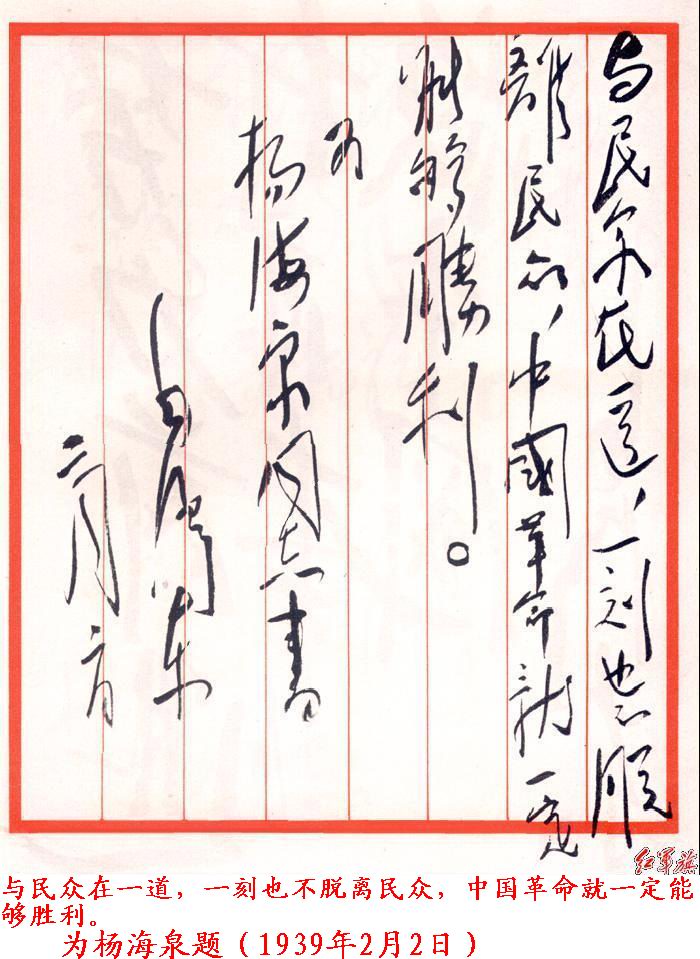 与民众在一道，一刻也不脱
離民众，中國革命就一定
能够勝利。
为
杨海泉同志書
毛泽东
二月二日
红军旗
与民众在一道，一刻也不脱离民众，中国革命就一定能
够胜利。
为杨海泉题（1939年2月2日）